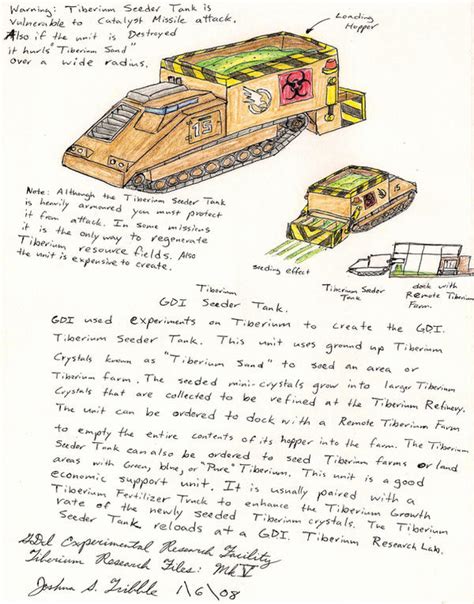 Warning: Tiberium Seeder Tank is
vulnerable to Catalyst Missile attack.
Also if the unit is Destroyed
it hurls "Tiberium Sand"
over a wide radius.
Loading
Hopper
15
Note: Although the Tiberium Seeder Tank
is heavily armoured you must protect
it from attack. In some missions
it is the only way to regenerate
Tiberium resource fields. Also
the unit is expensive to create.
15
seeding effect
Tiberium Seeder
Tank
dock with
Remote Tiberium
Farm.
Tiberium
GDI Seeder Tank.
GDI used experiments on Tiberium to create the GDI.
Tiberium Seeder Tank. This unit uses ground up Tiberium
Crystals known as "Tiberium Sand" to seed an area or
Tiberium farm. The seeded mini-crystals grow into larger Tiberium
Crystals that are collected to be refined at the Tiberium Refinery.
The unit can be ordered to dock with a Remote Tiberium Farm
to empty the entire contents of its hopper into the farm. The Tiberium
Seeder Tank can also be ordered to seed Tiberium farms or land
areas with Green, blue, or "Pure" Tiberium. This unit is a good
economic support unit. It is usually paired with a
Tiberium Fertilizer Truck to enhance the Tiberium Growth
rate of the newly seeded Tiberium crystals. The Tiberium
Seeder Tank reloads at a GDI. Tiberium Research Lab.
GDI Experimental Research Facility
Tiberium Research Files: Mk V
Joshua S. Tribble 1/6/08